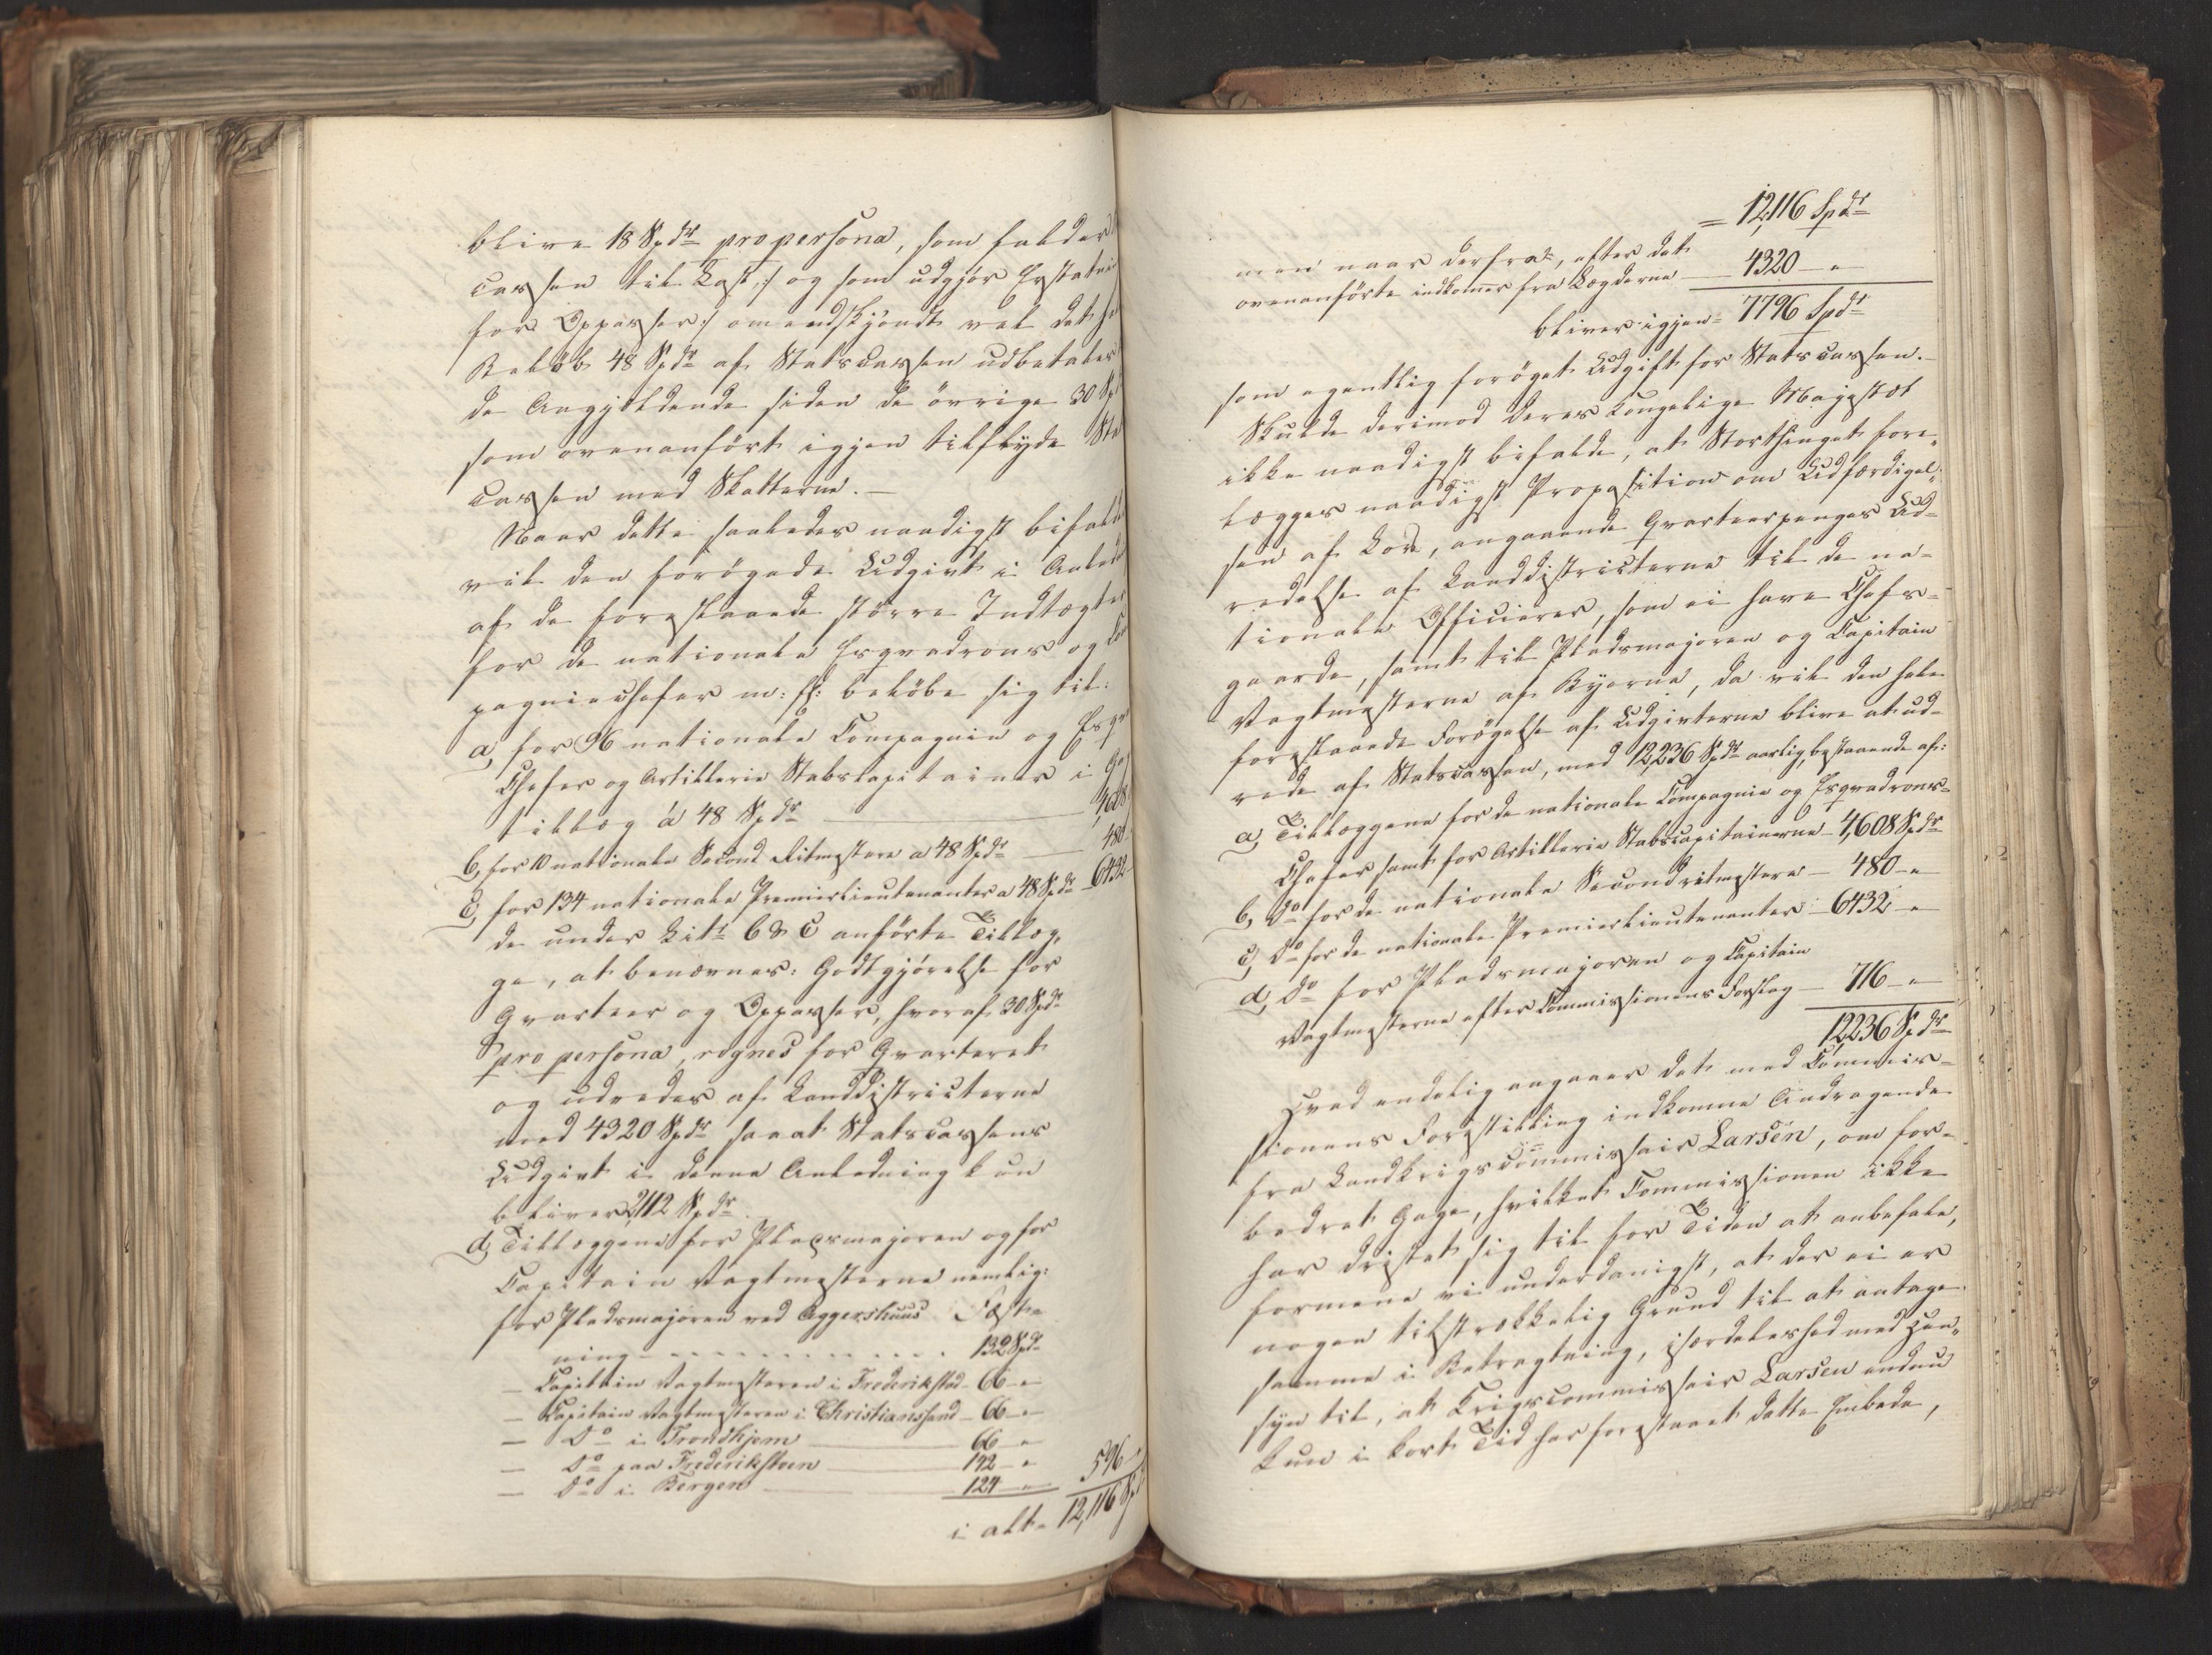 blive 18 Spdr pro persona, som falder
cassen til Last,:/ og som udgjør Erstatni
for Oppasser:/ omendskjöndt vel det he
Belöb 48 Spdr af Statscassen udbetales
de Angjeldende siden de övrige 30 Sp
som ovenanfört igjen tilflyde Sta
cassen med Skatterne.—
Naar dette saaledes naadigst bifald
vil den forögede Udgivt i Anled
af de foreslaaede större Indtægter
for de nationale Esqvadrons og Com
pagniechefer m: fl: belöbe sig til:
a, for 96 nationale Compagnie og Esqv
Chefer og Artillerie Stabscapitainer i Ga
tillæg á 48 Spdr — 4,608
b, for 10 nationale Second Ritmestere a 48 Spdr — 480
c, for 134 nationale Premierlieutenanter a 48 Spdr — 6432
de under Litr b & c anförte Tillæg,
ge, at benævnes: Godtgjörelse for
Qvarteer og Oppasser, hvoraf 30 Spdr
pro persona, regnes for Qvarteret
og udredes af Landdistricterne
med 4320 Spdr saaat Statscassens
Udgivt i denne Anledning kun
bliver 2,112 Spdr.
d, Tillæggene for Pladsmajoren og for
Capitain Vagtmesterne nemlig:
for Pladsmajoren ved Aggershuus Fæst=
ning - - - - - - - - - - 132 Spdr
— Capitain Vagtmesteren i Frederikstad — 66 — "
— Capitain Vagtmesteren i Christianssand — 66 — "
— Do i Trondhjem — 66 — "
— Do paa Frederiksteen — 142 — "
— Do i Bergen — 124 — " 596 —
i alt = 12,116 Sp
= 12,116 Spdr
men naar derfra, efter det
ovenanförte indkommer fra Lægderne — 4320 — "
bliver igjen = 7796 Spdr
som egentlig foröget Udgift for Statscassen.—
Skulde derimod Deres Kongelige Majestæt
ikke naadigst bifalde, at Storthinget fore„
lægges naadigst Proposition om Udfærdigel„
sen af Lov, angaaende Qvarteerpenges Ud=
redelse af Landdistricterne til de na=
tionale Officierer, som ei have Chefs=
gaarde, samt til Pladsmajoren og Capitain
Vagtmesterne af Byerne, da vil den hele
foreslaaede Forögelse af Udgivterne blive at ud=
rede af Statscassen, med 12,236 Spdr aarlig, bestaaende af:
a, Tillæggene for de nationale Compagnie og Esqvadrons=
Chefer samt for Artillerie Stabscapitainerne — 4,608 Spdr
b, Do for de nationale Secondritmestere — 480 — "
c, Do for de nationale Premierlieutenanter — 6432 — "
d, Do for Pladsmajoren og Capitain
Vagtmesterne efter Commissionens Forslag — 716 — "
12,236 Spdr
Hvad endelig angaaer det med Commis=
sionens Forestilling indkomne Andragende
fra Landkrigscommissair Larsen, om for=
bedret Gage, hvilket Commissionen ikke
har dristet sig til for Tiden at anbefale,
formene vi underdanigst, at der ei er
nogen tilstrækkelig Grund til at antage
samme i Betragtning, især deles hed med Hen„
syn til, at Krigscommissair Larsen endnu
kun i kort Tid har forestaaet dette Embede,